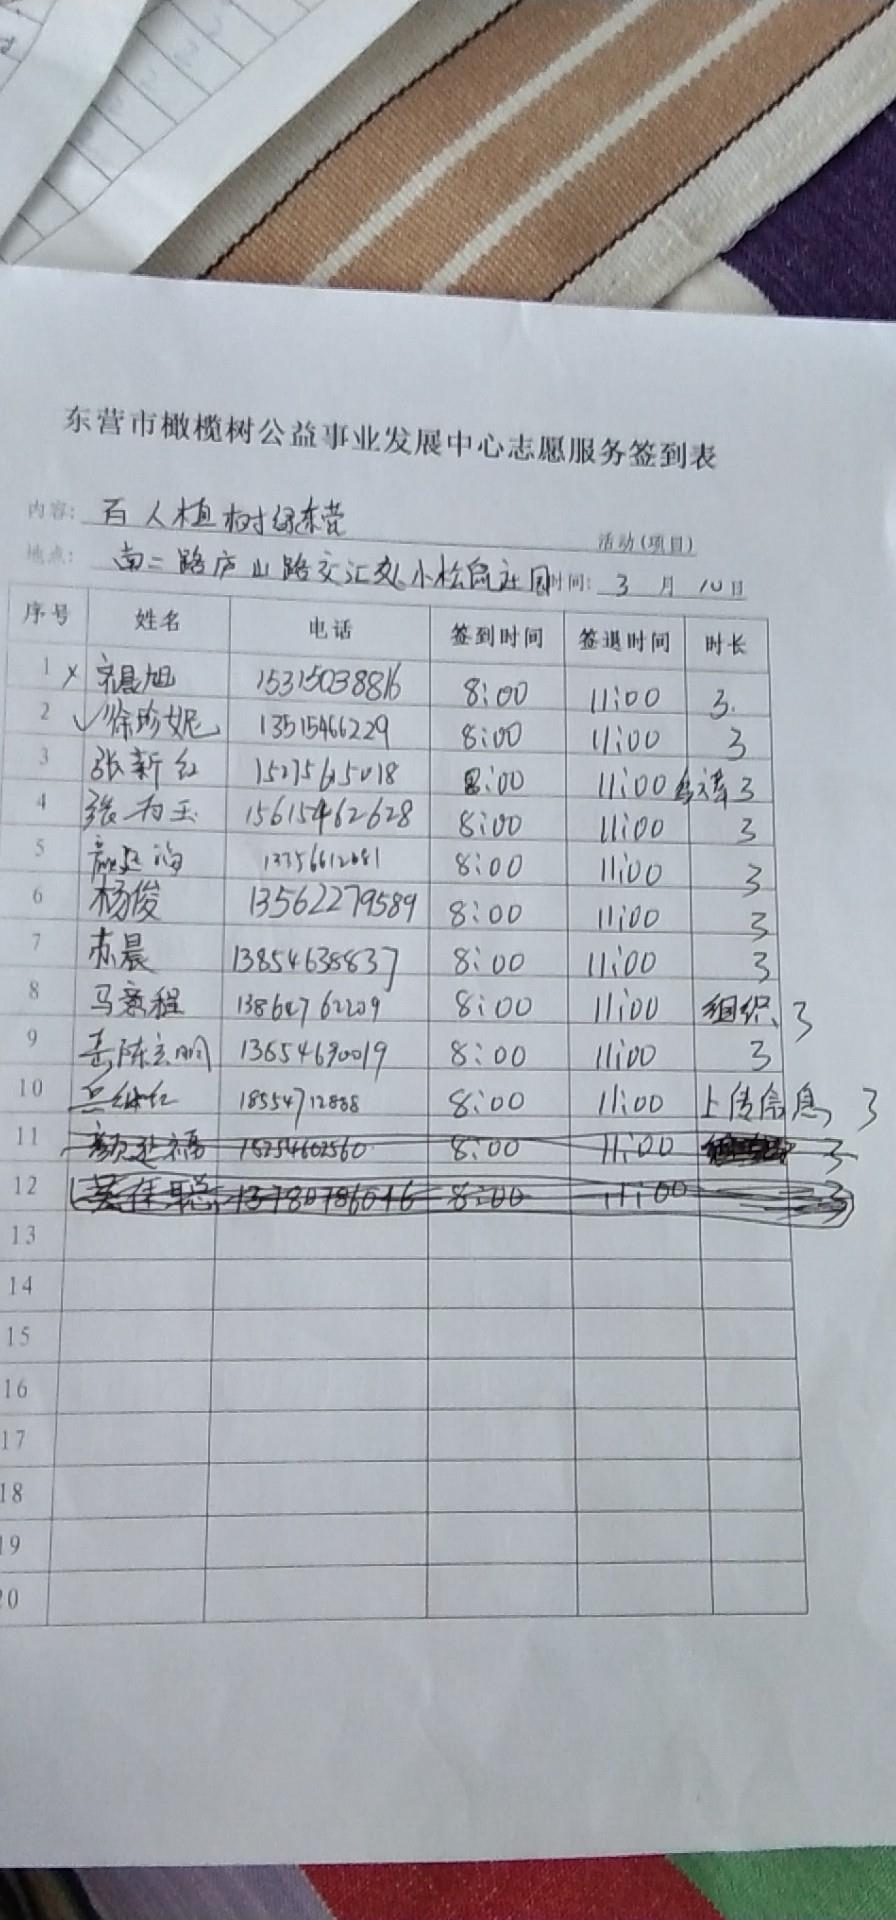 东营市橄榄树公益事业发展中心志愿服务签到表
内容: 百人植树绿东营 活动(项目)
地点: 南二路庐山路交汇处小松鼠庄园 时间: 3月10日
序号 姓名 电话 签到时间 签退时间 时长
1 × 晨旭 15315038816 8:00 11:00 3.
2 ✓ 徐珍妮 13515466229 8:00 11:00 3
3 张新红 15275615018 8:00 11:00 3
4 张 玉 15615462628 8:00 11:00 3
5 海 8:00 11:00 3
6 杨俊 13562279589 8:00 11:00 3
7 苏晨 13854638837 8:00 11:00 3
8 马 程 13864762209 8:00 11:00 组织、3
9 13654690019 8:00 11:00 3
10 红 18554712888 8:00 11:00 上传信息 3
11 颜廷福 18254602560 8:00 11:00 3
12 佳聪 13780786046 8:00 11:00 3
13
14
15
16
17
18
19
20